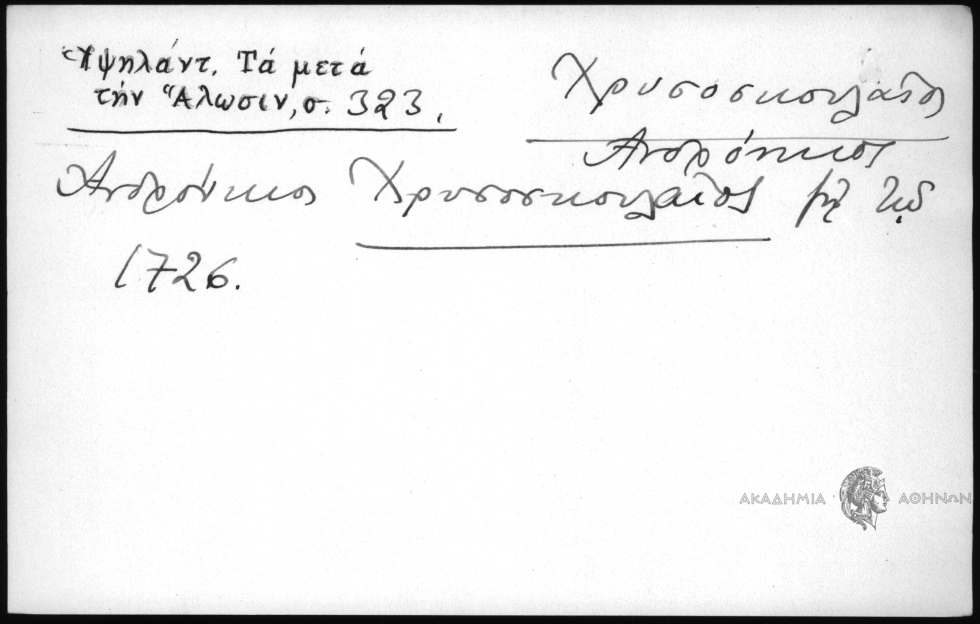 Ὑψηλάντ. Τά μετά
τήν Ἅλωσιν, σ. 323.
Χρυσοσκουλαῖος
Ἀνδρόνικος
Ἀνδρόνικος Χρυσοσκουλαῖος
1726.
ΑΚΑΔΗΜΙΑ ΑΘΗΝΩΝ